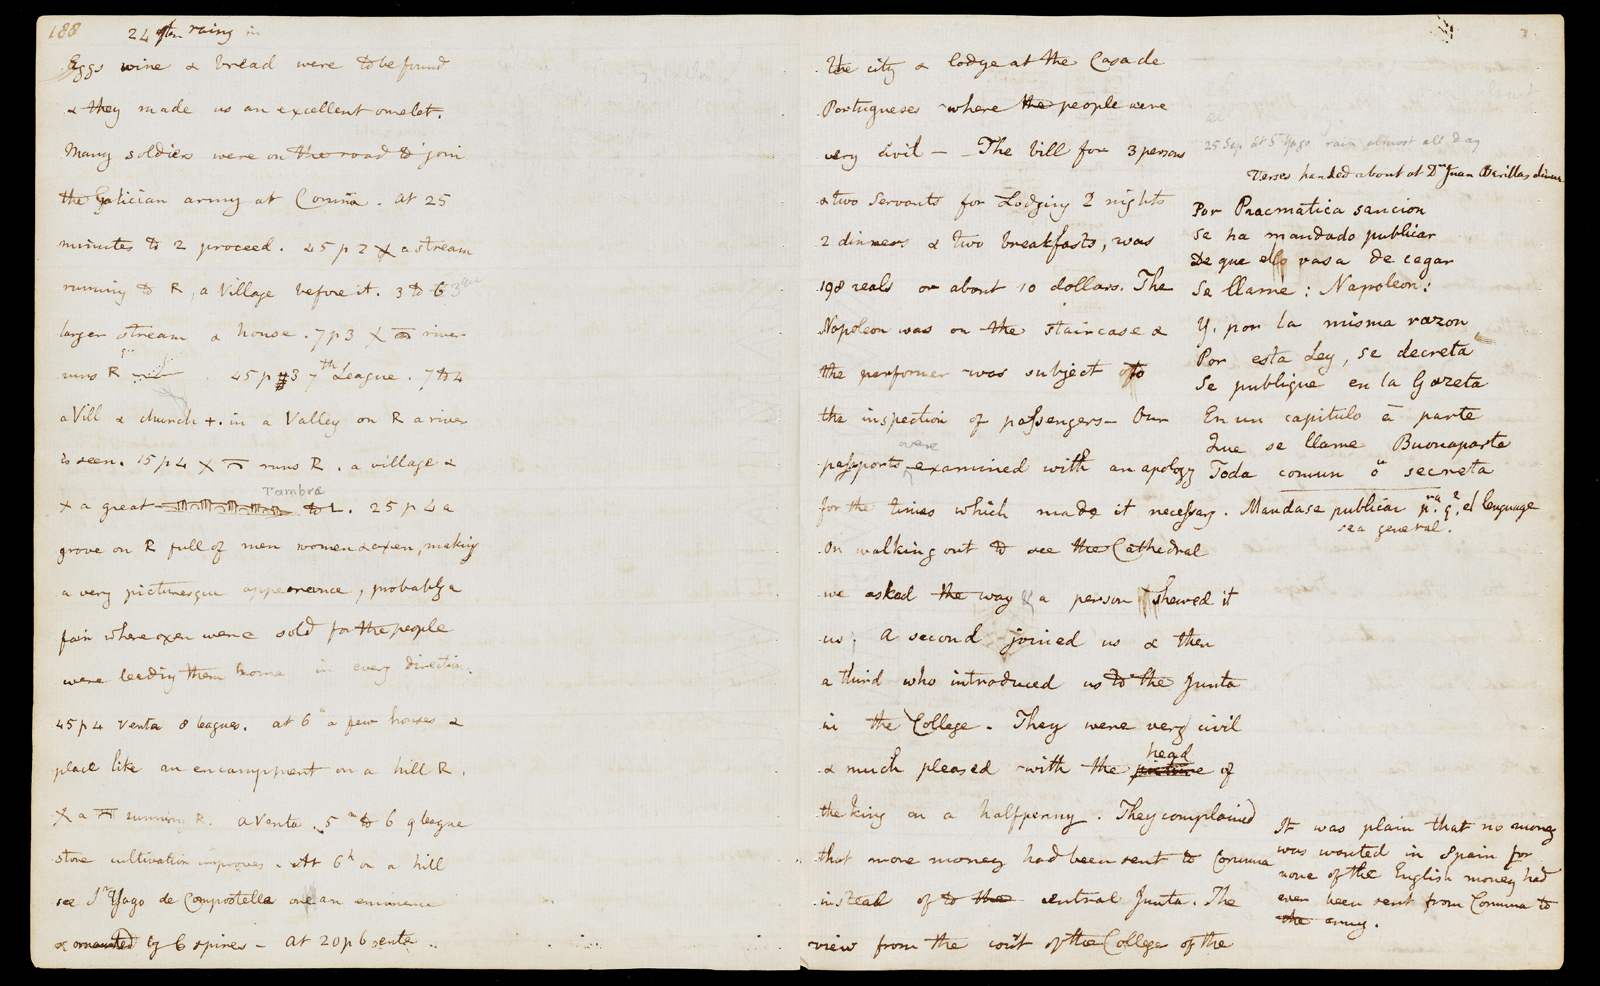 188
24 rainy in
Eggs wine & bread were to be found
& they made us an excellent omelet.
Many soldiers were on the road to join
the Galician army at Coruña. At 25
minutes to 2 proceed. 25 p 2 X a stream
running to R, a Village before it. 3 to 3
larger stream & house. 7 p 3 X river
runs R 45 p 3 7th League. 7 to 4
a Vill & church +. in a Valley on R a river
is seen. 15 p 4 X runs R. a village &
Tambre
X a great to L. 25 p 4 a
grove on R full of men women & oxen, making
a very picturesque appearance, probably a
fair where oxen were sold for the people
were leading them home in every direction.
45 p 4 Venta 8 leagues. at 6 a few houses &
place like an encampment on a hill R.
X a running R. a Venta. 5 m to 6 9 league
stone cultivation improves. At 6h on a hill
see St Yago de Compostella on an eminence
& by 6 spires - At 20 p 6 enta ..
the city & lodge at the Casa de
Portugueses where the people were
very civil - The bill for 3 persons
& two Servants for Lodging 2 nights
2 dinners & two breakfasts, was
198 reals or about 10 dollars. The
Napoleon was on the staircase &
the performer was subject to
the inspection of passengers - Our
were
passports examined with an apology
for the times which made it necessary.
On walking out to see the Cathedral
we asked the way & a person shewed it
us; A second joined us & then
a third who introduced us to the Junta
in the College. They were very civil
head
& much pleased with the picture of
the King on a halfpenny. They complained
that more money had been sent to Corunna
instead of to the central Junta. The
view from the court of the College of the
25 Sep at St Yago rain almost all day
Verses handed about at Dn Juan Varillas dinner
Por Pracmatica sancion
Se ha mandado publicar
De que el vasa de cagar
Se llame: Napoleon:
Y, por la misma razon
Por esta Ley, se decreta
Se publique en la Gazeta
En un capitulo à parte
Que se llame Buonaparte
Toda comun ò secreta
Mandase publicar pra. q.e el lenguage
sea general.
It was plain that no money
was wanted in Spain for
none of the English money had
even been sent from Corunna to
the army.